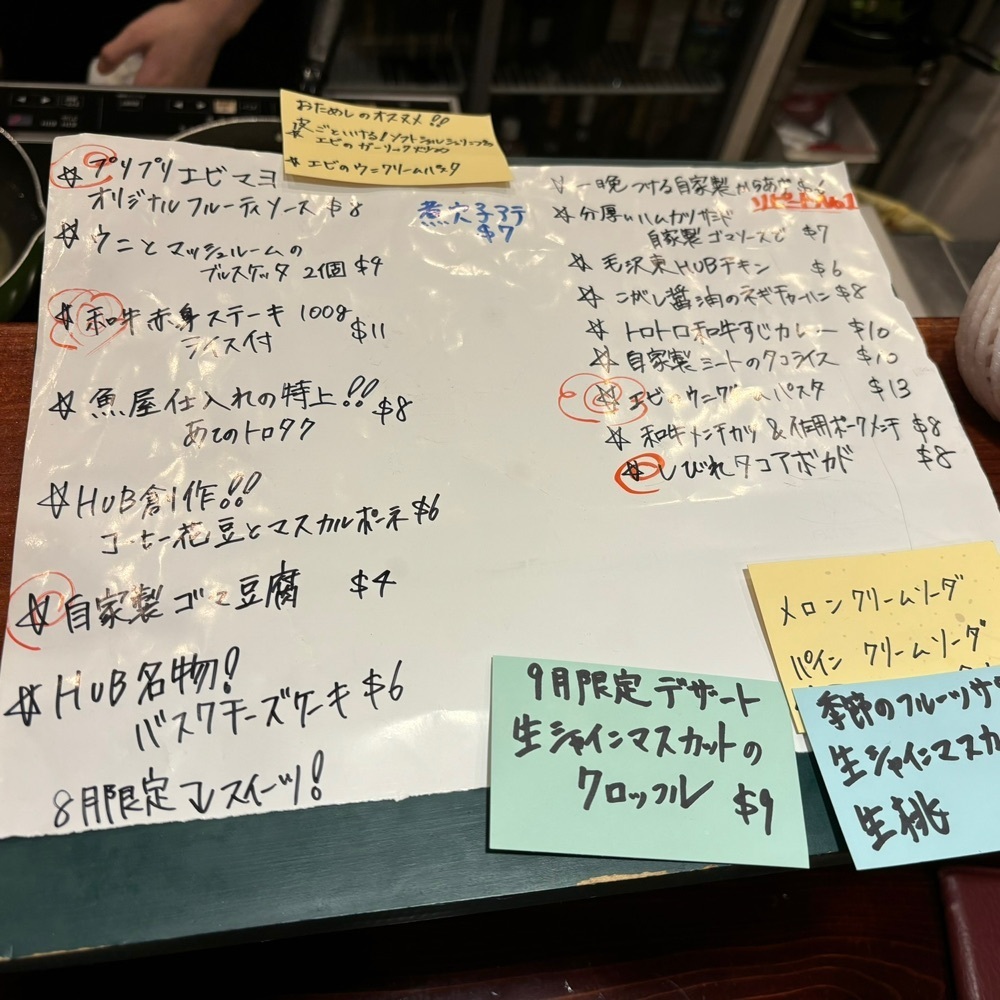 おためしのオススメ!!
☆ 皮ごといける!ソフトシェルシュリンプの
エビのガーリック
☆ エビのウニクリームパスタ
☆ プリプリエビマヨ
オリジナルフルーティソース $8
☆ ウニとマッシュルームの
ブルスケッタ 2個 $9
☆ 和牛赤身ステーキ 100g
ライス付 $11
☆ 魚屋仕入れの特上!! $8
あてのトロタク
☆ HUB創作!!
コーヒー花豆とマスカルポーネ $6
☆ 自家製ゴマ豆腐 $4
☆ HUB名物!
バスクチーズケーキ $6
8月限定 スイーツ!
煮穴子アテ
$7
☆ 一晩つける自家製からあげ
リピートNo.1
☆ 分厚いハムカツサンド
自家製ゴマソースで $7
☆ 毛沢東HUBチキン $6
☆ こがし醤油のネギチャーハン $8
☆ トロトロ和牛すじカレー $10
☆ 自家製ミートのタコライス $10
☆ エビのウニクリームパスタ $13
☆ 和牛メンチカツ & ポークメンチ $8
☆ しびれタコアボカド $8
メロンクリームソーダ
パイン クリームソーダ
9月限定デザート
生シャインマスカットの
クロッフル $9
季節のフルーツサ
生シャインマスカ
生桃